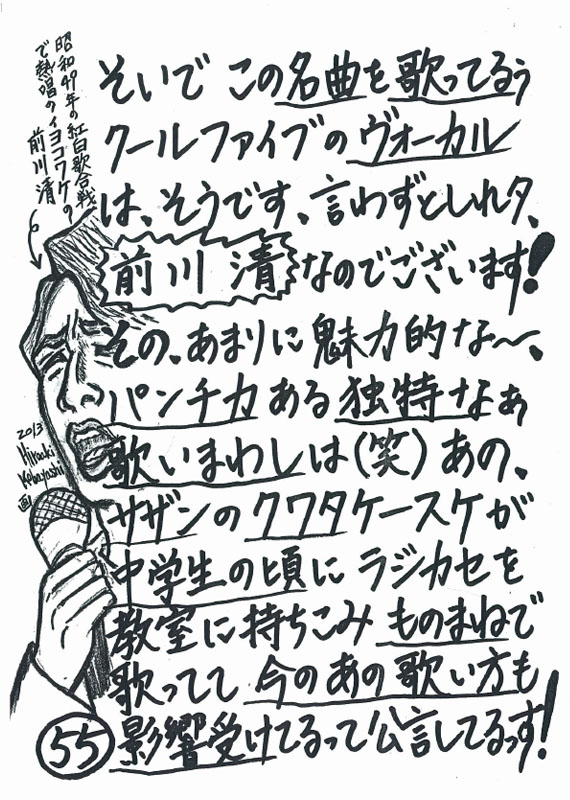 昭和49年の紅白歌合戦
で熱唱のイヨコワケの
前川清
そいで この名曲を歌ってるぅ
クールファイブのヴォーカル
は、そうです、言わずとしれタ、
前川 清なのでございます!
その、あまりに魅力的な〜、
パンチ力ある独特なぁ
歌いまわしは(笑)あの、
サザンのクワタケースケが
中学生の頃にラジカセを
教室に持ちこみ ものまねで
歌ってて 今のあの歌い方も
影響受けてるって公言してるっす!
2013
Hiroaki
Kobayashi
画
55